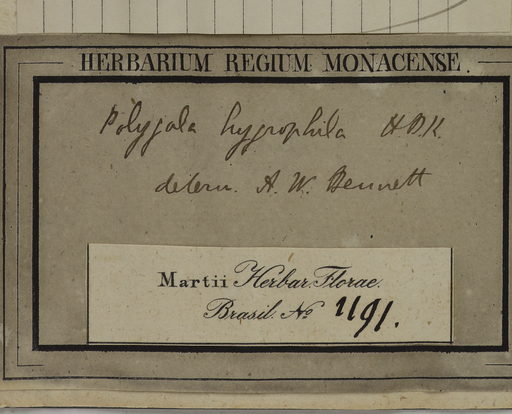 HERBARIUM REGIUM MONACENSE.
Polygala hygrophila HBK.
determ. A. W. Bennett
Martii Herbar. Florae.
Brasil. No 1191.